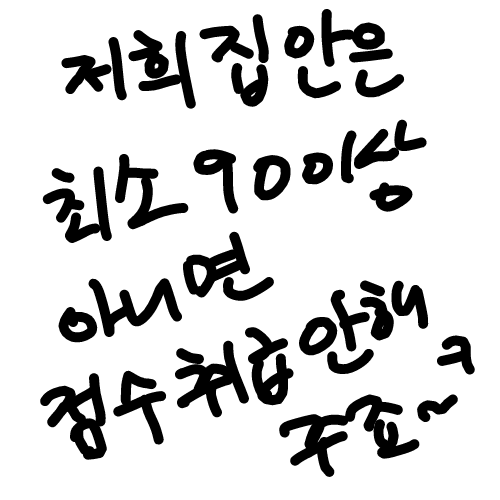 저희 집안은
최소 90이상
아니면
점수 취급 안해
주죠~ㅋ